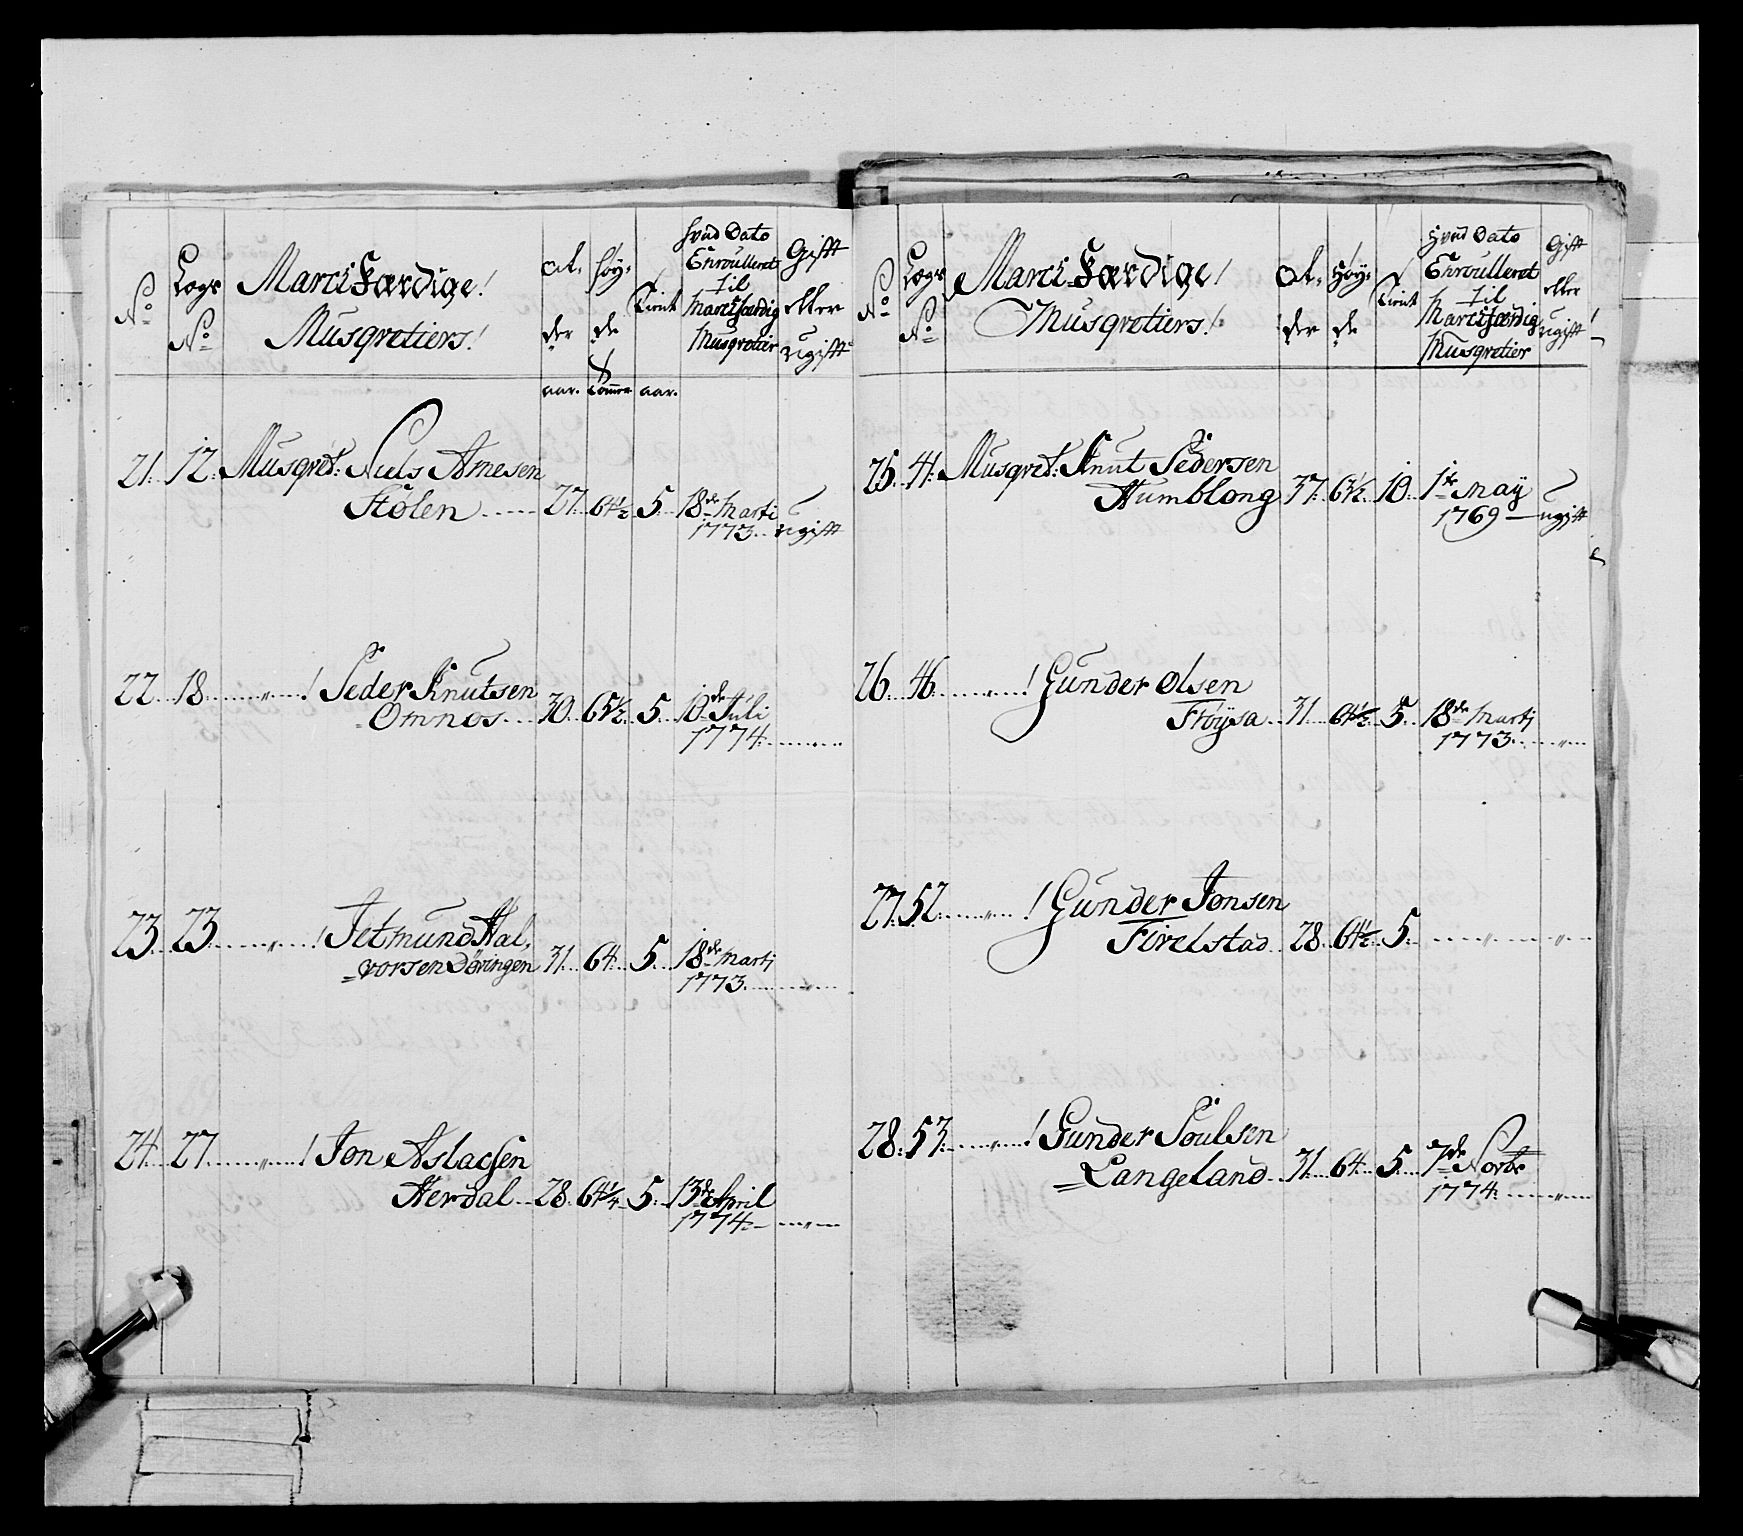 No
Lægs No
Marci Færdige!
Musqvetiers!
Al, der
aar.
Høy, de
Tomme
Tient
aar.
hvad Dato
Enroulleret
til
Marcifærdig
Musqvetier
Gift
eller
Ugift
21. 12. Musqvet: Niels Arnesen
Stølen 27. 64½ 5. 18de Martj
1773. ugift
22. 18. " ! Peder Knutsen
Omnos 30. 65½ 5. 10de Juli
1774. "
23. 23. " ! Jetmund Hal,
vorsen Dövingen 31. 64. 5. 18de Martj
1773. "
24. 27. " ! Jon Aslacsen
Herdal 28. 64¼ 5. 13de April
1774. "
No
Lægs No
Marci Færdige!
Musqvetiers!
Al, der
Høy, de
Tient
hvad Dato
Enroulleret
til
Marcifærdig
Musqvetier
Gift
eller
ugift
25. 41. Musqvet: Knut Pedersen
Humblong 37. 63½ 10. 1te May
1769 ugift
26. 46. " ! Gunder Olsen
Frøysa 31. 64½ 5. 18de Martj
1773. "
27. 52. " ! Gunder Jonsen
Firelstad 28. 64½ 5. " "
28. 53. " ! Gunder Poulsen
Langeland 31. 64. 5. 7de Novbr
1774. "